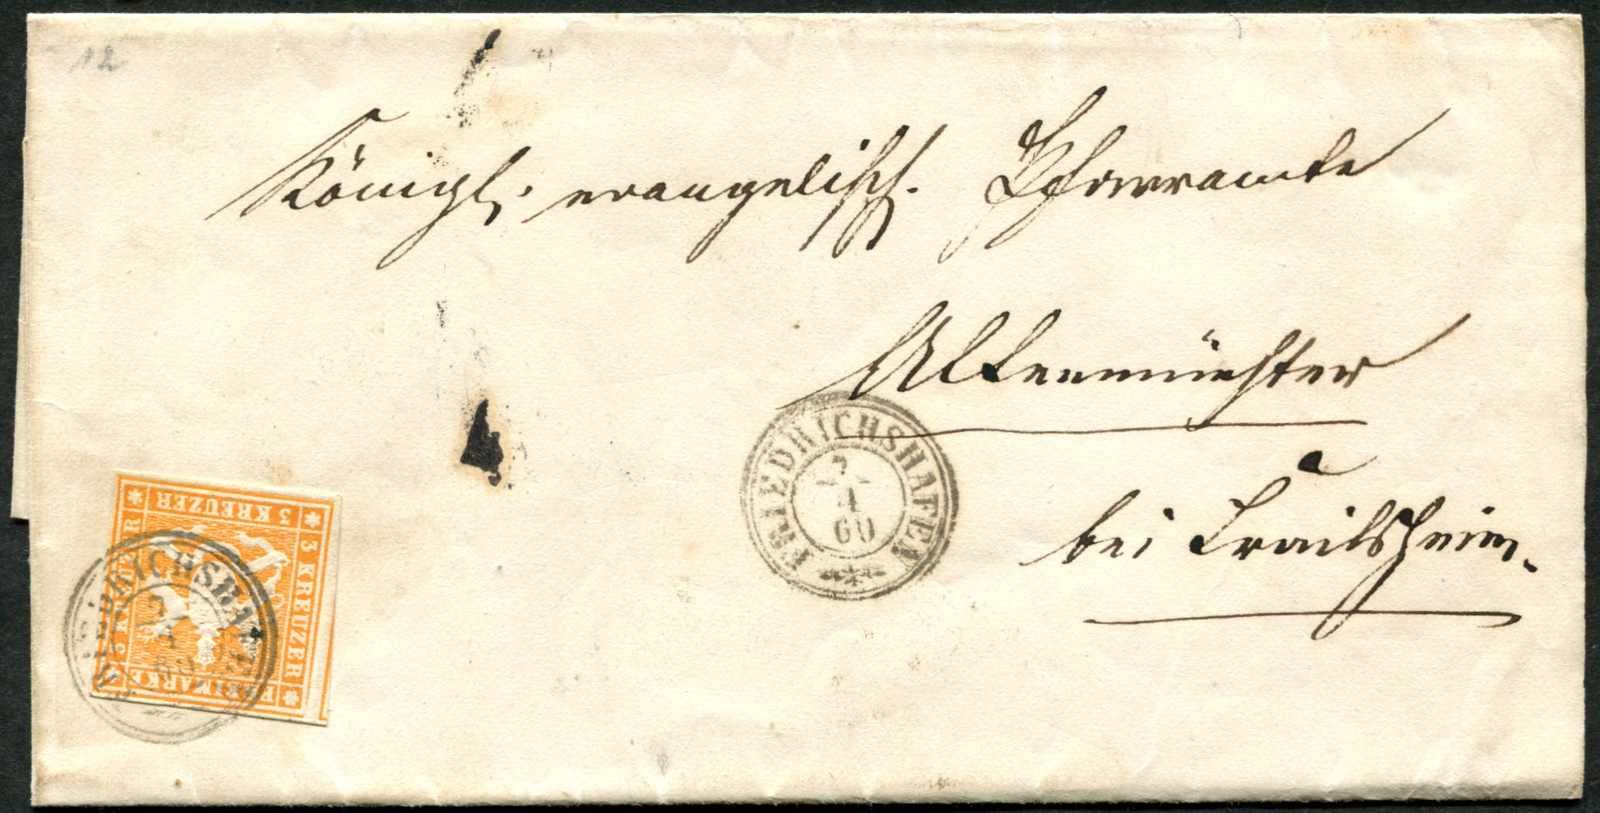 12
Königl. evangelisch. Pfarramte
Altenmünster
bei Crailsheim.
FRIEDRICHSHAFEN
2
4
60
3 KREUZER
3 KREUZER
3 KREUZER
FREIMARKE
FRIEDRICHSHAFEN
2
4
60